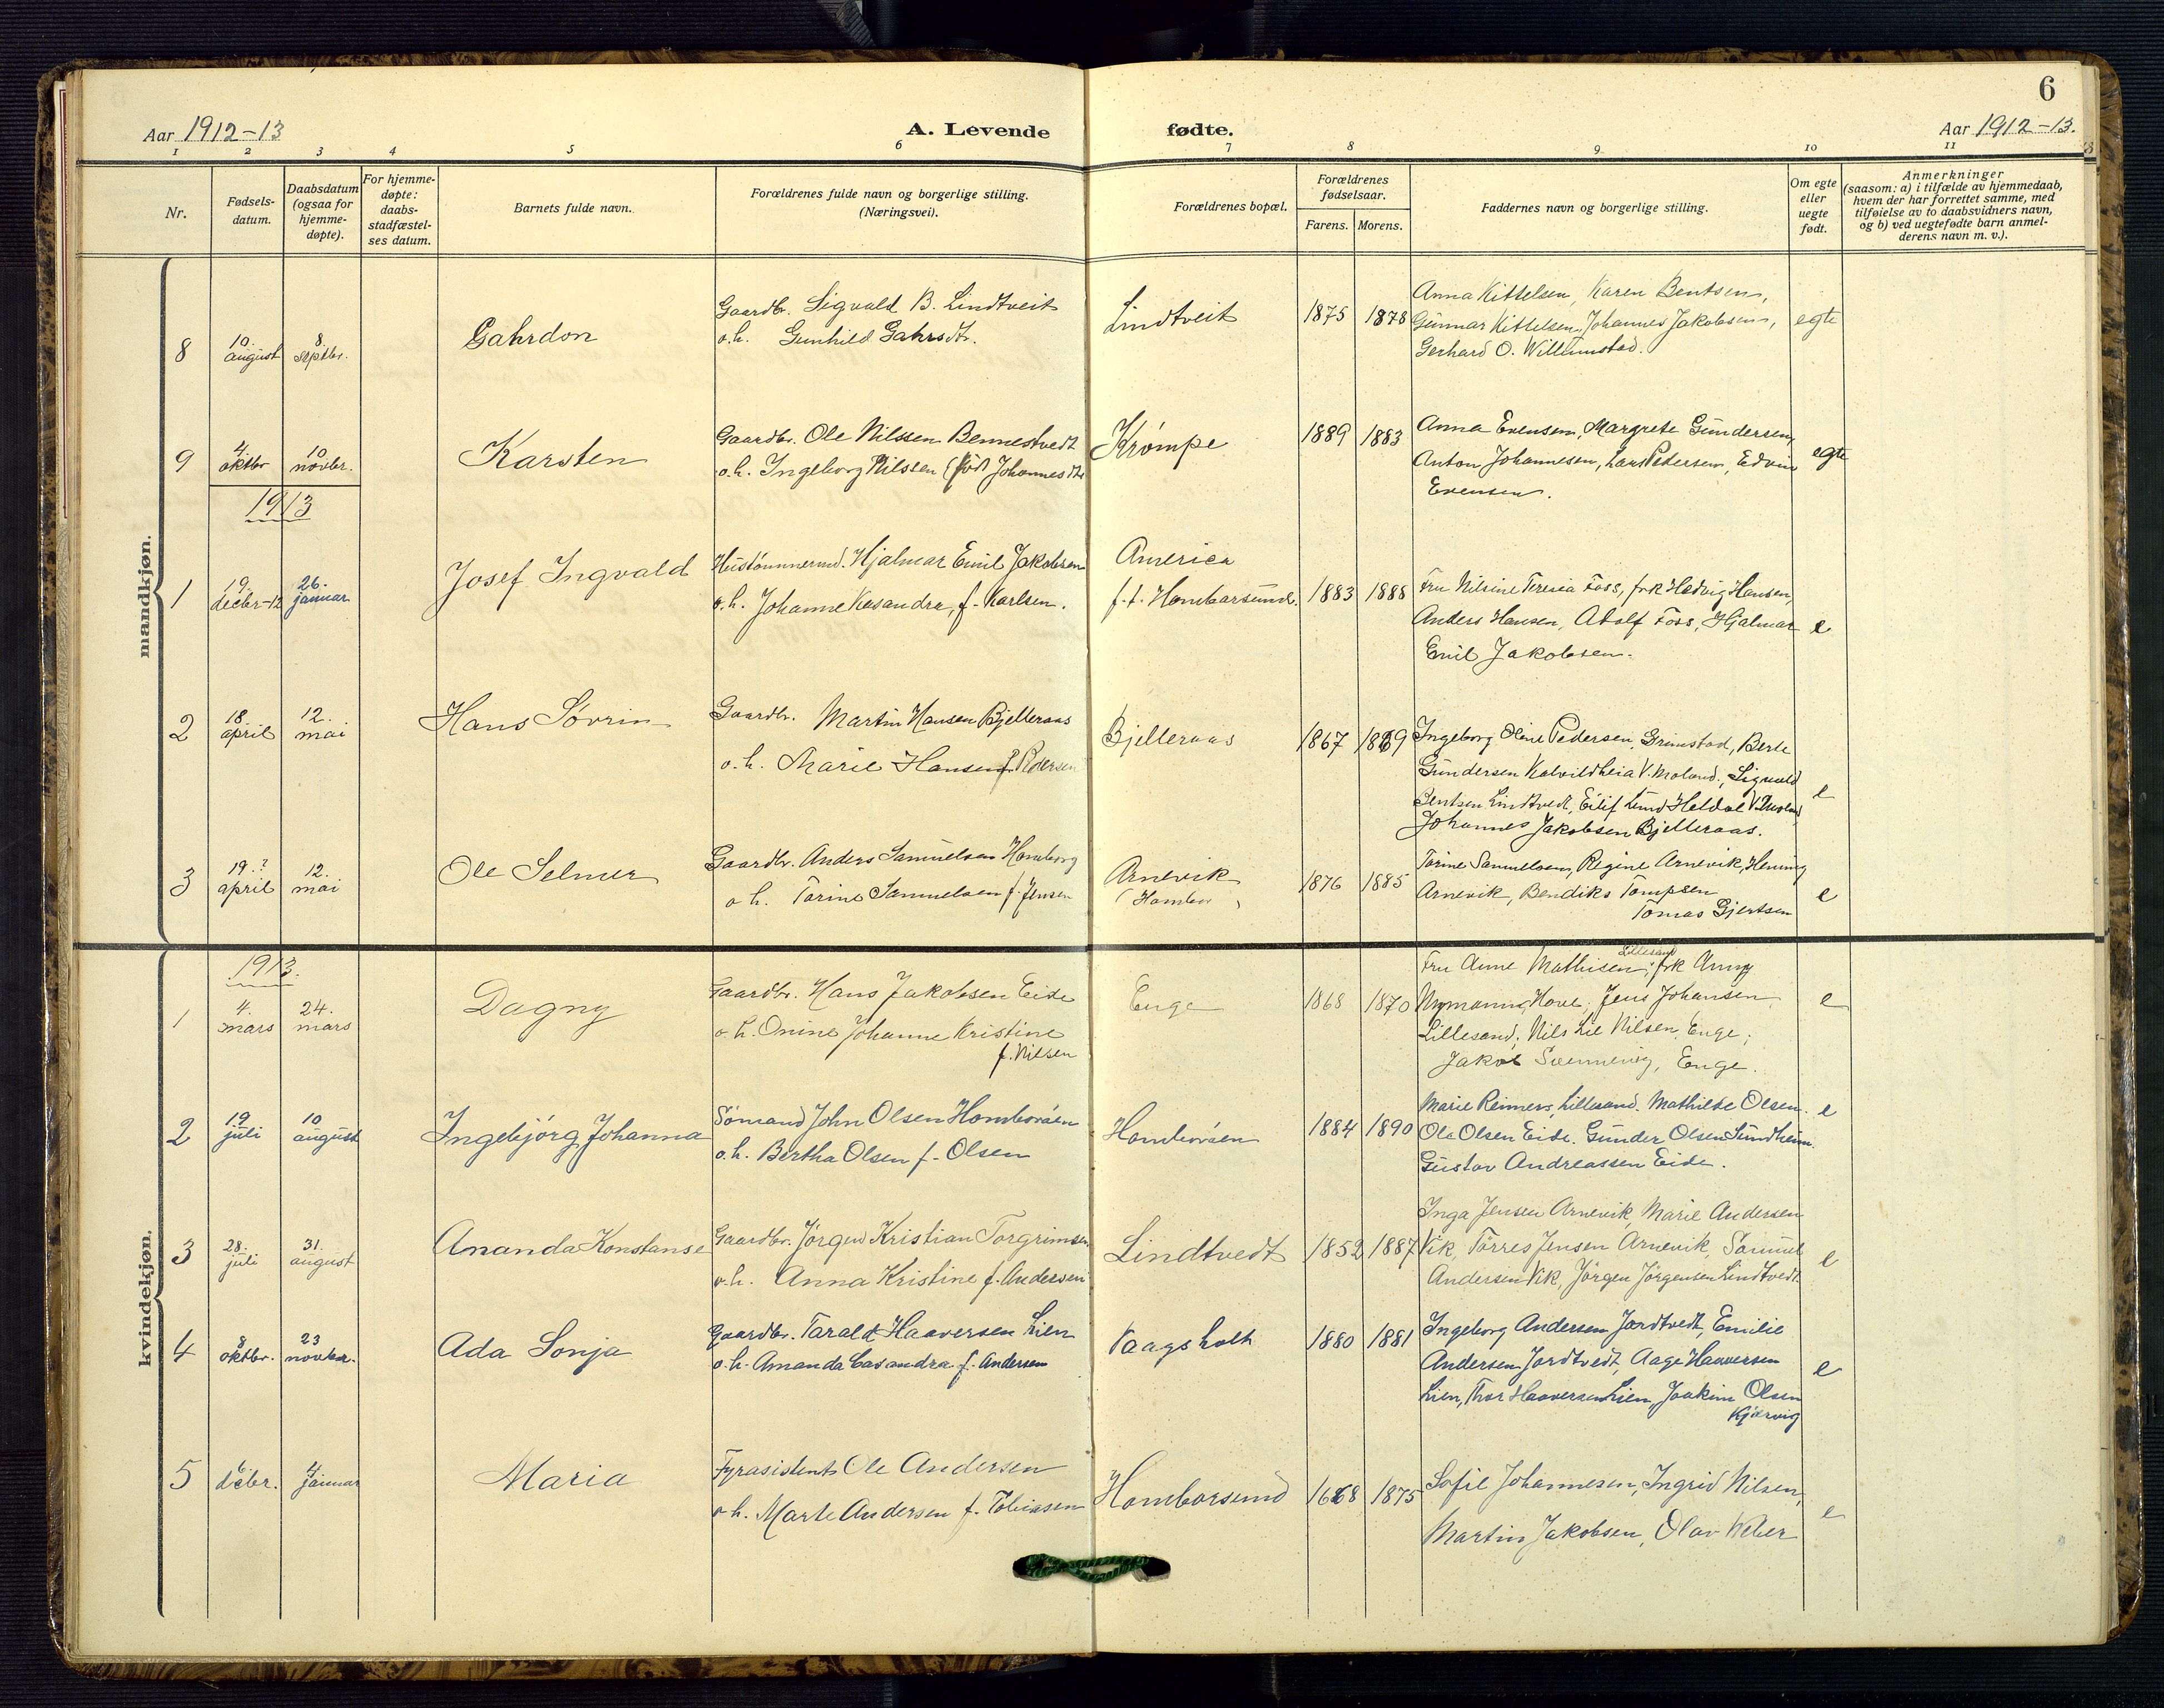 6
Aar 1912-13
A. Levende
fødte.
Aar 1912-13.
1 2 3 4 5 6 7 8 9 10 11
Nr.
Fødsels-
datum.
Daabsdatum
(ogsaa for
hjemme-
døpte).
For hjemme-
døpte:
daabs-
stadfæstel-
ses datum.
Barnets fulde navn.
Forældrenes fulde navn og borgerlige stilling.
(Næringsvei).
Forældrenes bopæl.
Forældrenes
fødselsaar.
Farens.
Morens.
Faddernes navn og borgerlige stilling.
Om egte
eller
uegte
født.
Anmerkninger
(saasom: a) i tilfælde av hjemmedaab,
hvem der har forrettet samme, med
tilføielse av to daabsvidners navn,
og b) ved uegtefødte barn anmel-
derens navn m. v.).
mandkjøn.
8
10.
august
8.
septbr.
Gahrdon
Gaardbr. Sigvald B. Lindtveit
o.h. Gunhild Gahrsdtr.
Lindtveit
1875
1878
Anna Kittelsen, Karen Bentsen,
Gunnar Kittelsen, Johannes Jakobsen,
Gerhard O. Willumstad.
egte
9
4.
oktbr
10
novbr.
Karsten
Gaardbr. Ole Nilssen Bennestvedt
o.h. Ingeborg Nilssen (født Johannesdtr
Krömpe
1889
1883
Anna Evensen, Margrete Gundersen,
Anton Johannesen, Lars Pedersen, Edvin
Evensen.
egte
1913
1
19.
decbr-12
26.
januar
Josef Ingvald
Hustömmermd. Hjalmar Emil Jakobsen
o.h. Johanne Kasandra, f. Karlsen.
America
f.t. Homborsund.
1883
1888
Fru Nilsine Teresia Foss, frk Hedvig Hansen,
Anders Hansen, Adolf Foss, Hjalmar
Emil Jakobsen.
e
2
18.
april
12.
mai
Hans Sövrin
Gaardbr. Martin Hansen Bjelleraas
o.h. Marie Hansen f. Pedersen
Bjelleraas
1867
1869
Ingeborg Oline Pedersen, Grimstad, Berte
Gundersen Kalvildheia V. Moland, Sigvald
Bentsen Lindtvedt, Eilif Lund Heldal
Johannes Jakobsen Bjelleraas.
e
3
19.?
april
12.
mai
Ole Selmer
Gaardbr. Anders Samuelsen Homborg
o h. Torine Samuelsen f. Jensen
Arnevik
1876
1885
Torine Samuelsen, Regine Arnevik, Hening
Arnevik, Bendiks Tompsen
Tomas Gjertsen
e
kvindekjøn.
1913.
1
4.
mars
24.
mars
Dagny
Gaardbr. Hans Jakobsen Eide
o.h. Onine Johanne Kristine
f. Nilsen
Enge
1868
1870
Lillesand
Fru Anne Mathisen, frk Anny
Nymann, Hove, Jens Johansen
Lillesand, Nils Lie Nilsen, Enge,
Jakob Svennevig, Enge.
e
2
19
juli
10
august
Ingebjörg Johanna
Sömand John Olsen Homboråen
o.h. Bertha Olsen f. Olsen
Homboråen
1884
1890
Marie Reiners, Lillesand. Mathilde Olsen.
Ole Olsen Eide. Gunder Olsen Sundheim.
Gustav Andreassen Eide.
e
3
28.
juli
31.
august
Ananda Konstanse
Gaardbr. Jörgen Kristian Torgrimsen
o.h. Anna Kristine f. Andersen
Lindtvedt
1852
1887
Inga Jensen Arnevik, Marie Andersen
Vik, Törres Jensen Arnevik, Samuel
Andersen Vik, Jörgen Jörgensen Lindtvedt.
e
4
8
oktbr.
23
novbr.
Ada Sonja
Gaardbr. Tarald Haaversen Lien
o.h. Amanda Casandra f. Andersen
Vaagsholt
1880
1881
Ingeborg Andersen Jordtvedt, Emilie
Andersen Jordtvedt, Aage Haaversen
Lien, Thor Haaversen Lien, Joakim Olsen
Kjærvig
e
5
6
decbr.
4
januar
Maria
Fyrasistent Ole Andersen
o h. Marte Andersen f. Tobiasen
Homborsund
1868
1875
Sofie Johannesen, Ingrid Nilsen,
Martin Jakobsen, Olav Weber
e